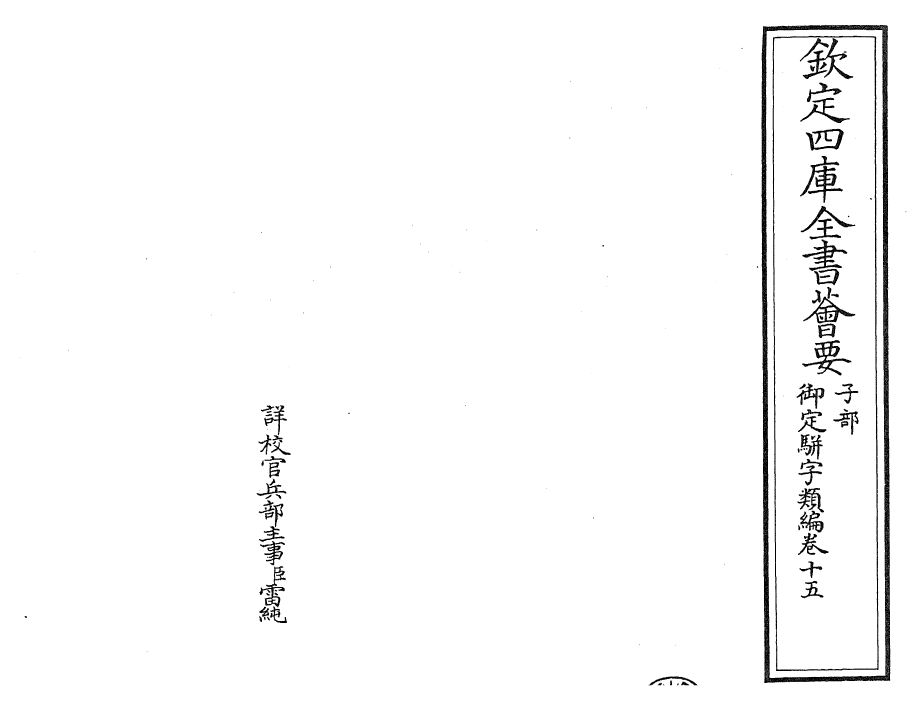 欽定四庫全書薈要
子部
御定駢字類編卷十五
詳校官兵部主事臣雷純